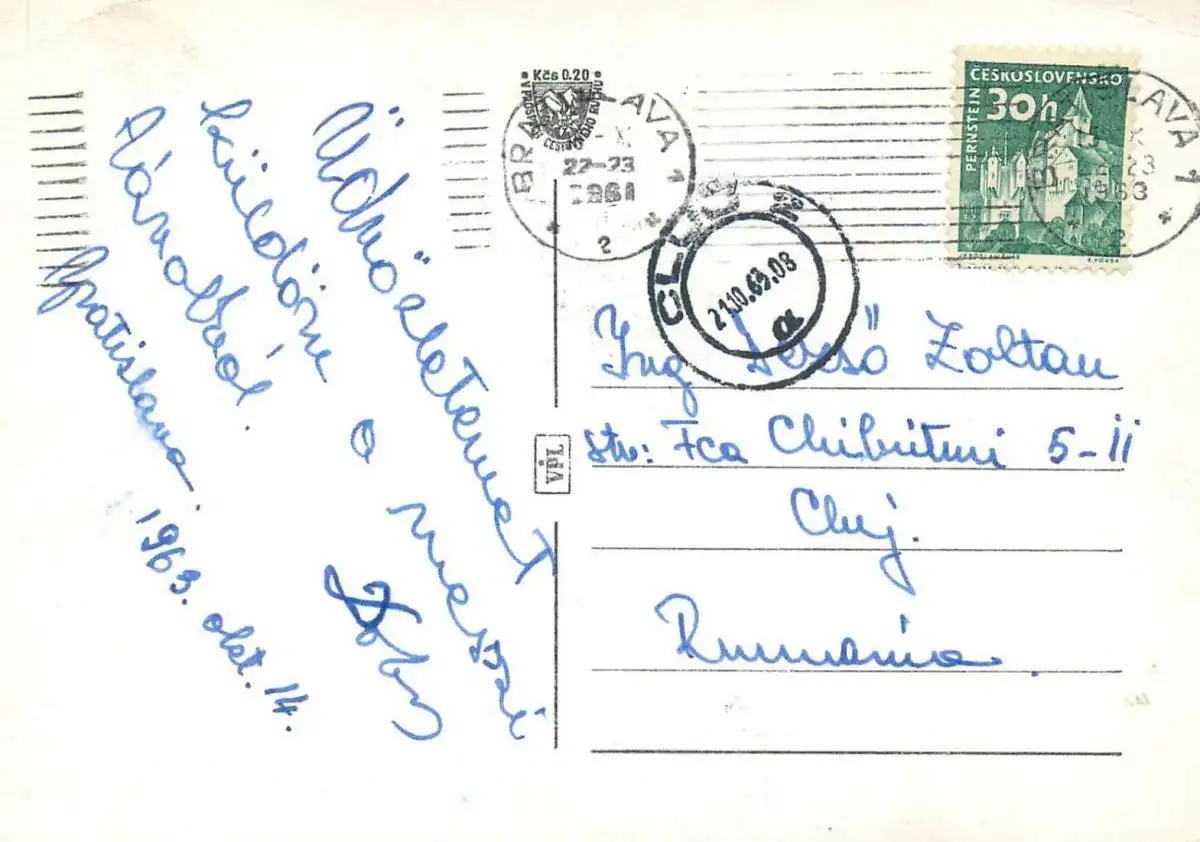 Üdvözletemet
küldöm a messzi
városból.
Bratislava.
1963. okt. 14.
Kčs 0.20
BRATISLAVA 1
22-23
2
ČESKOSLOVENSKO
30h
PERNŠTEJN
BRATISLAVA 1
CLUJ
21.10.63.08
VPL
Ing Zoltan
str: Fca Chibrituri 5-II
Cluj.
Rumania